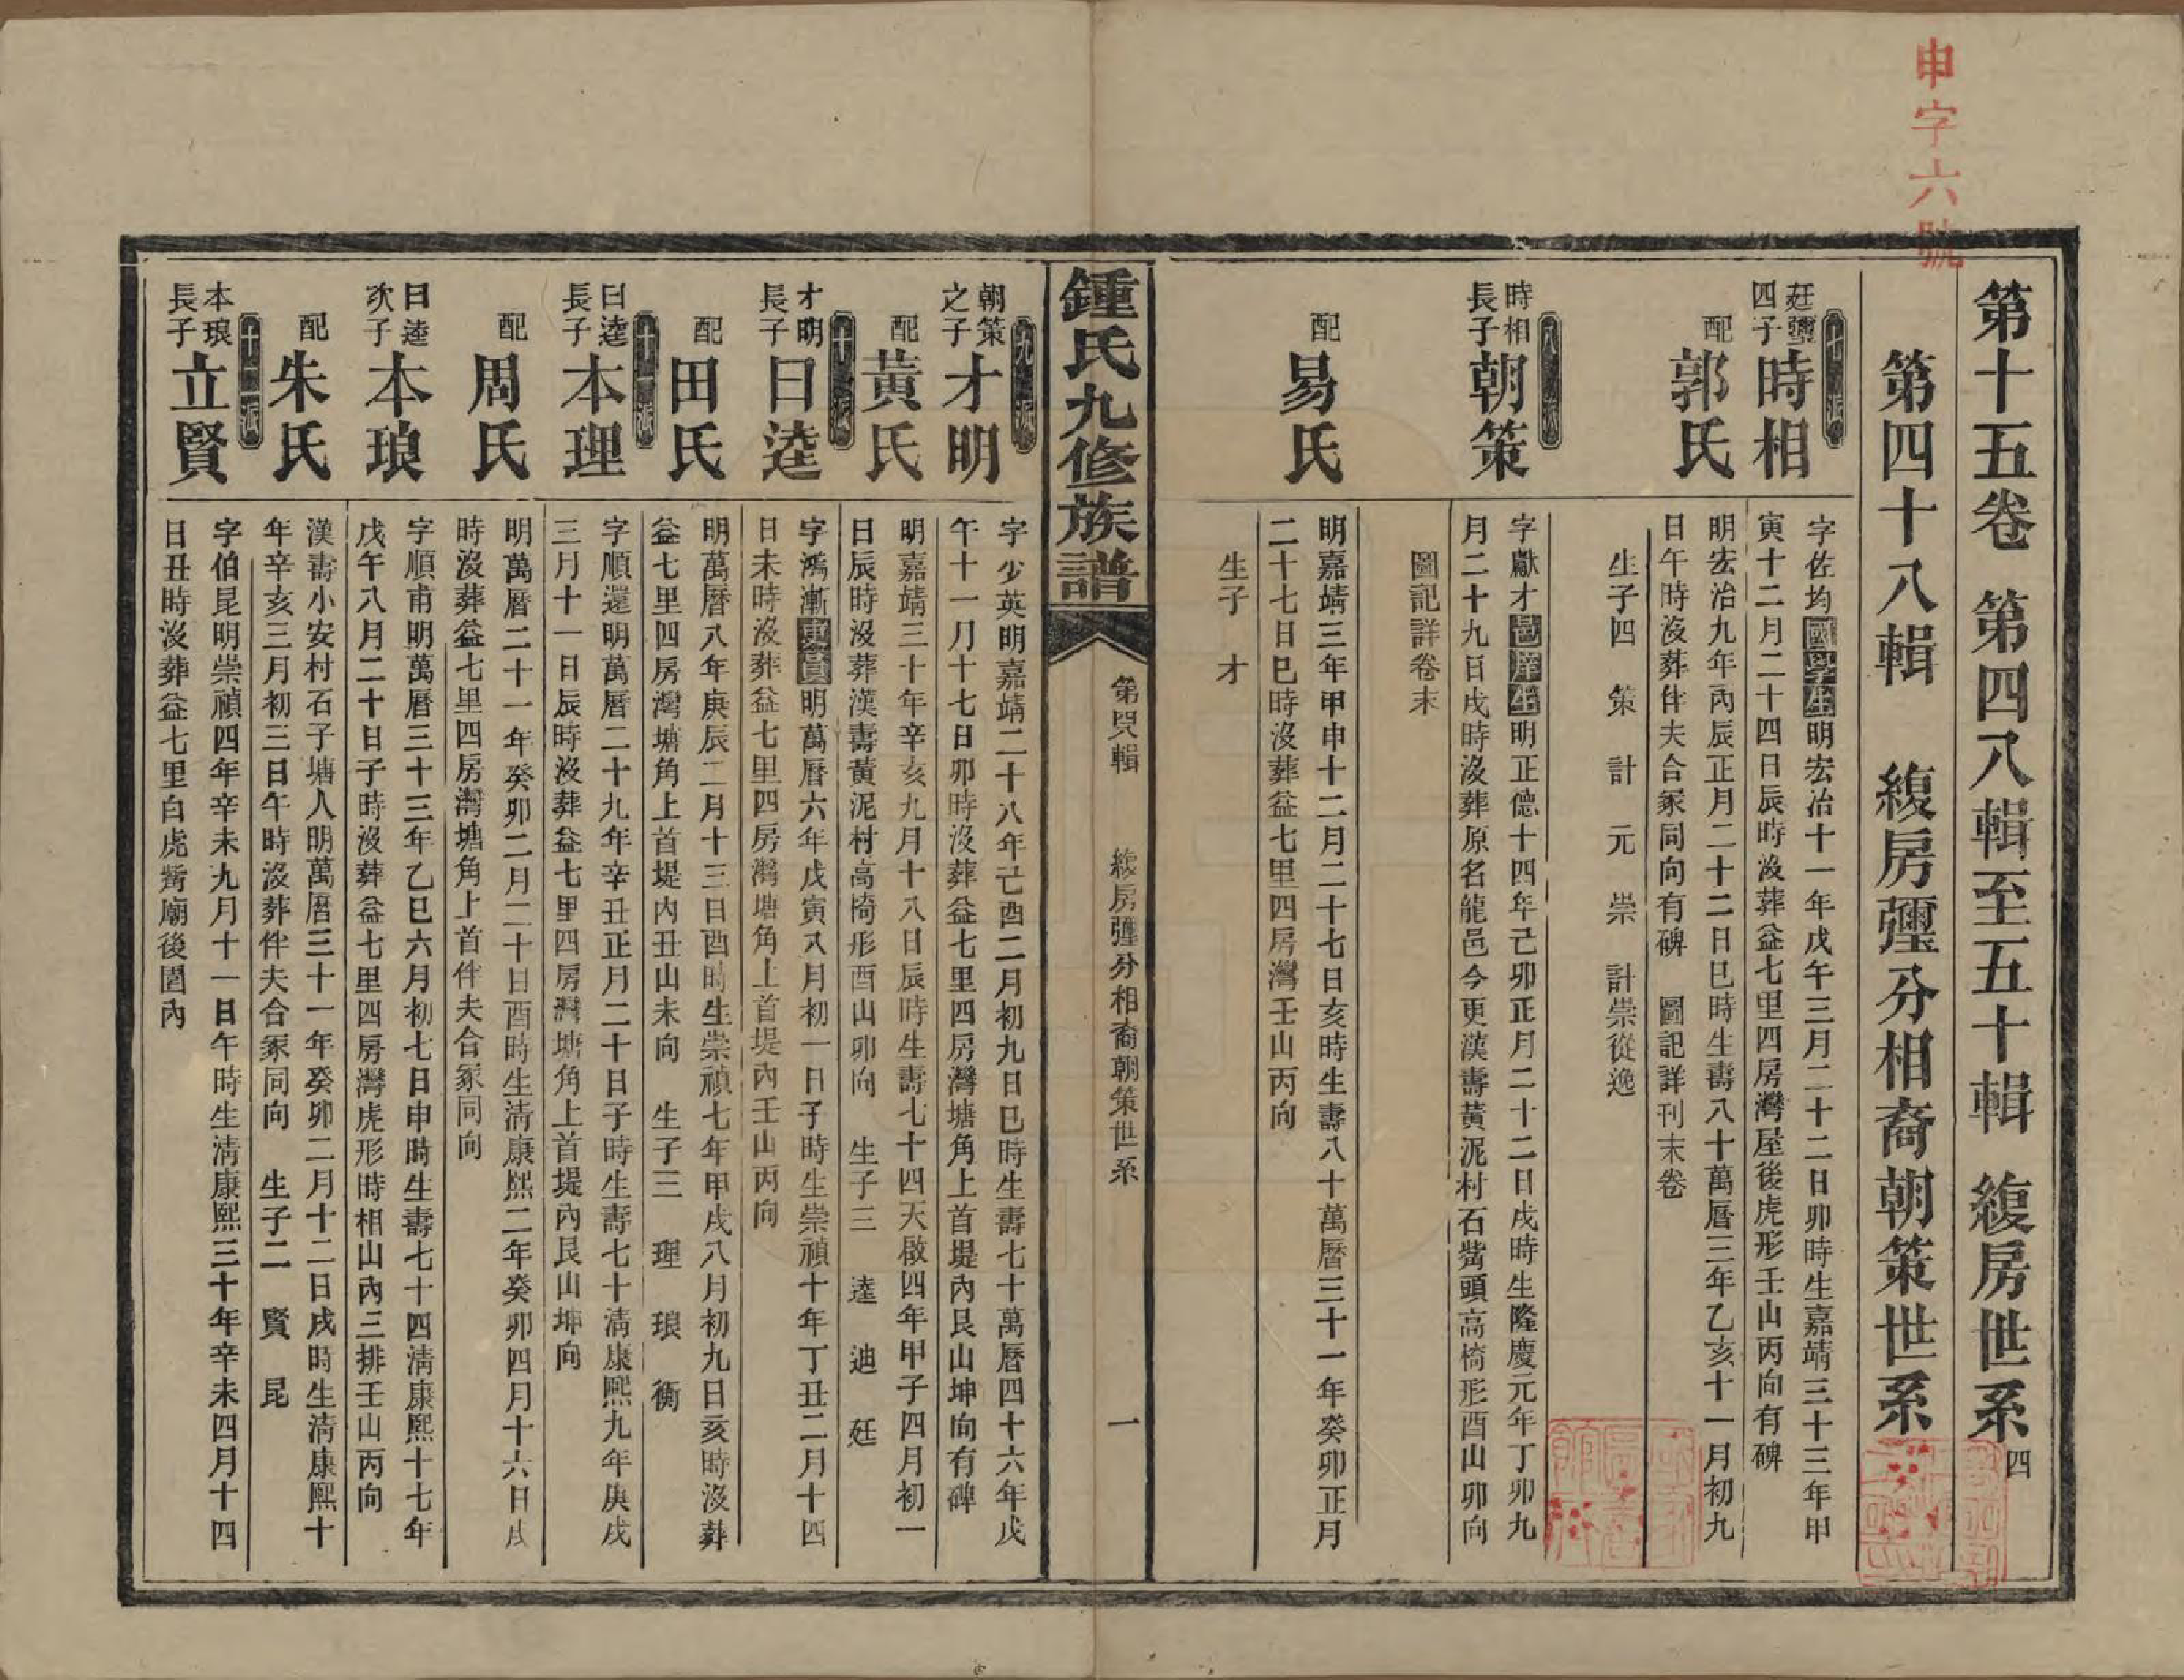 申字六號
第十五卷 第四八輯至五十輯 緮房世系 四
第四十八輯 緮房彊分相裔朝策世系
七派
廷
四子
時相
字佐均國學生明宏治十一年戊午三月二十二日卯時生嘉靖三十三年甲
寅十二月二十四日辰時沒葬益七里四房灣屋後虎形壬山丙向有碑
配
郭氏
明宏治九年丙辰正月二十二日巳時生壽八十萬曆三年乙亥十一月初九
日午時沒葬伴夫合冢同向有碑 圖記詳刊末卷
生子四 策 計 元 崇 計崇從逸
八派
時相
長子
朝策
字獻才邑庠生明正德十四年己卯正月二十二日戌時生隆慶元年丁卯九
月二十九日戌時沒葬原名龍邑今更漢壽黃泥村石觜頭高椅形酉山卯向
圖記詳卷末
配
易氏
明嘉靖三年甲申十二月二十七日亥時生壽八十萬曆三十一年癸卯正月
二十七日巳時沒葬益七里四房灣壬山丙向
生子 才
鍾氏九修族譜
第四八輯 緮房彊分相裔朝策世系 一
九派
朝策
之子
才明
字少英明嘉靖二十八年己酉二月初九日巳時生壽七十萬曆四十六年戊
午十一月十七日卯時沒葬益七里四房灣塘角上首堤內艮山坤向有碑
配
黃氏
明嘉靖三十年辛亥九月十八日辰時生壽七十四天啟四年甲子四月初一
日辰時沒葬漢壽黃泥村高椅形酉山卯向 生子三 逵 迪 廷
十派
才明
長子
日逵
字鴻漸明萬曆六年戊寅八月初一日子時生崇禎十年丁丑二月十四
日未時沒葬益七里四房灣塘角上首堤內壬山丙向
配
田氏
明萬曆八年庚辰二月十三日酉時生崇禎七年甲戌八月初九日亥時沒葬
益七里四房灣塘角上首堤內丑山未向 生子三 理 琅 衡
十一派
日逵
長子
本理
字順還明萬曆二十九年辛丑正月二十日子時生壽七十清康熙九年庚戌
三月十一日辰時沒葬益七里四房灣塘角上首堤內艮山坤向
配
周氏
明萬曆二十一年癸卯二月二十日酉時生清康熙二年癸卯四月十六日戌
時沒葬益七里四房灣塘角上首伴夫合冢同向
日逵
次子
本琅
字順甫明萬曆三十三年乙巳六月初七日申時生壽七十四清康熙十七年
戊午八月二十日子時沒葬益七里四房灣虎形時相山內三排壬山丙向
配
朱氏
漢壽小安村石子塘人明萬曆三十一年癸卯二月十二日戌時生清康熙十
年辛亥三月初三日午時沒葬伴夫合冢同向 生子二 賢 昆
十二派
本琅
長子
立賢
字伯昆明崇禎四年辛未九月十一日午時生清康熙三十年辛未四月十四
日丑時沒葬益七里白虎觜廟後園內